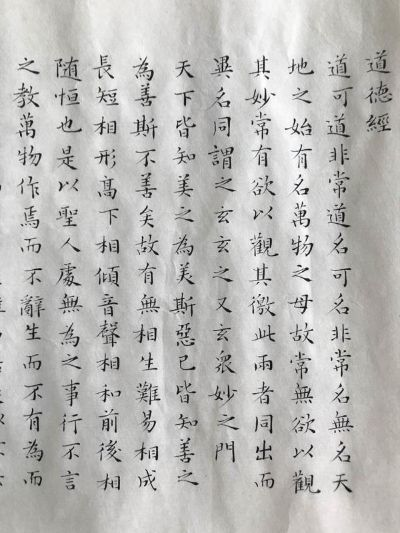 道德經
道可道非常道名可名非常名無名天
地之始有名萬物之母故常無欲以觀
其妙常有欲以觀其徼此兩者同出而
異名同謂之玄玄之又玄眾妙之門
天下皆知美之為美斯惡已皆知善之
為善斯不善矣故有無相生難易相成
長短相形髙下相傾音聲相和前後相
随恒也是以聖人處無為之事行不言
之教萬物作焉而不辭生而不有為而